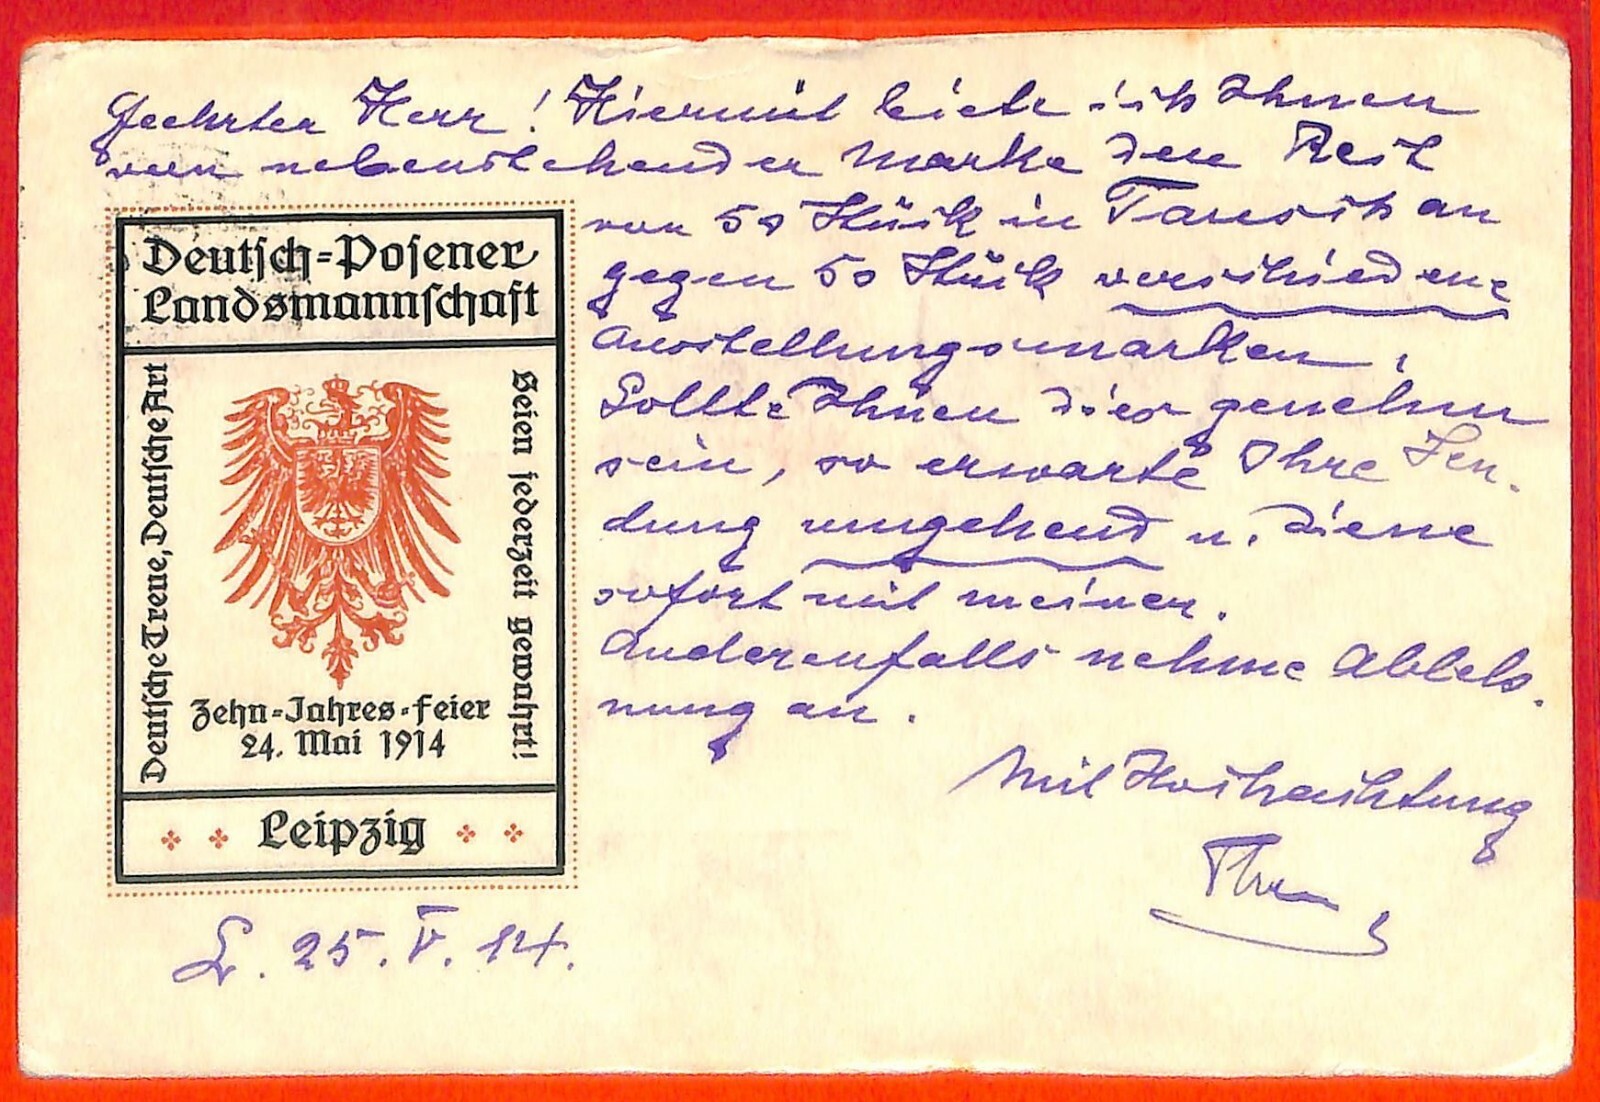 Geehrter Herr! Hiermit biete ich Ihnen
von nebenstehender Marke den Rest
von 50 Stück in Tausch an
gegen 50 Stück verschiedene
Ausstellungsmarken.
Sollte Ihnen dies genehm
sein, so erwarte Ihre Sen-
dung umgehend u. diene
sofort mit meiner.
Anderenfalls nehme Ableh-
nung an.
Mit Hochachtung
Deutsch-Posener
Landsmannschaft
Deutsche Treue, Deutsche Art
Seien jederzeit gewahrt!
Zehn-Jahres-Feier
24. Mai 1914
Leipzig
L. 25. V. 14.